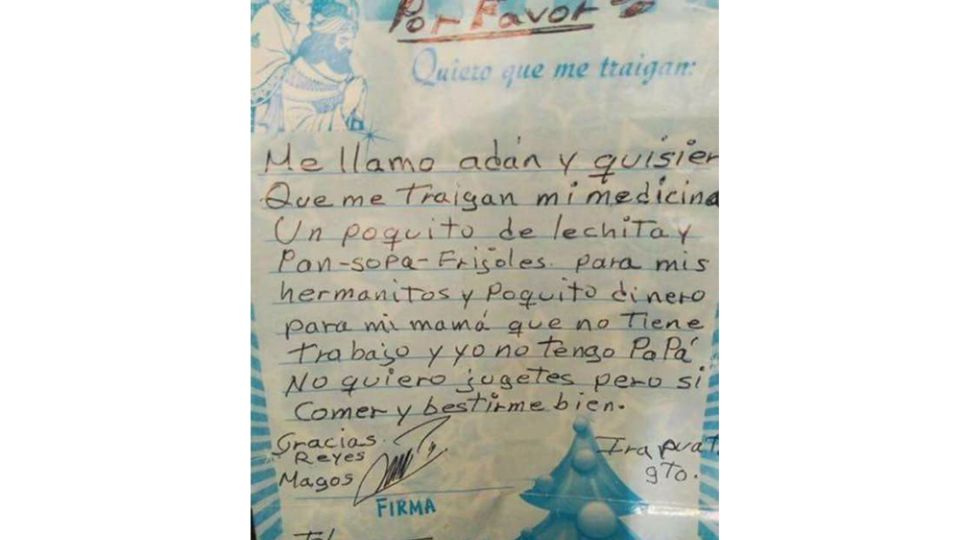 Por Favor
Quiero que me traigan:
Me llamo adán y quisier
Que me Traigan mi medicina
Un poquito de lechita y
Pan-sopa-Frijoles para mis
hermanitos y poquito dinero
para mi mamá que no Tiene
Trabajo y yo no tengo PaPá
No quiero jugetes pero si
Comer y bestirme bien.
Gracias
Reyes
Magos
Irapuat.
gto.
FIRMA